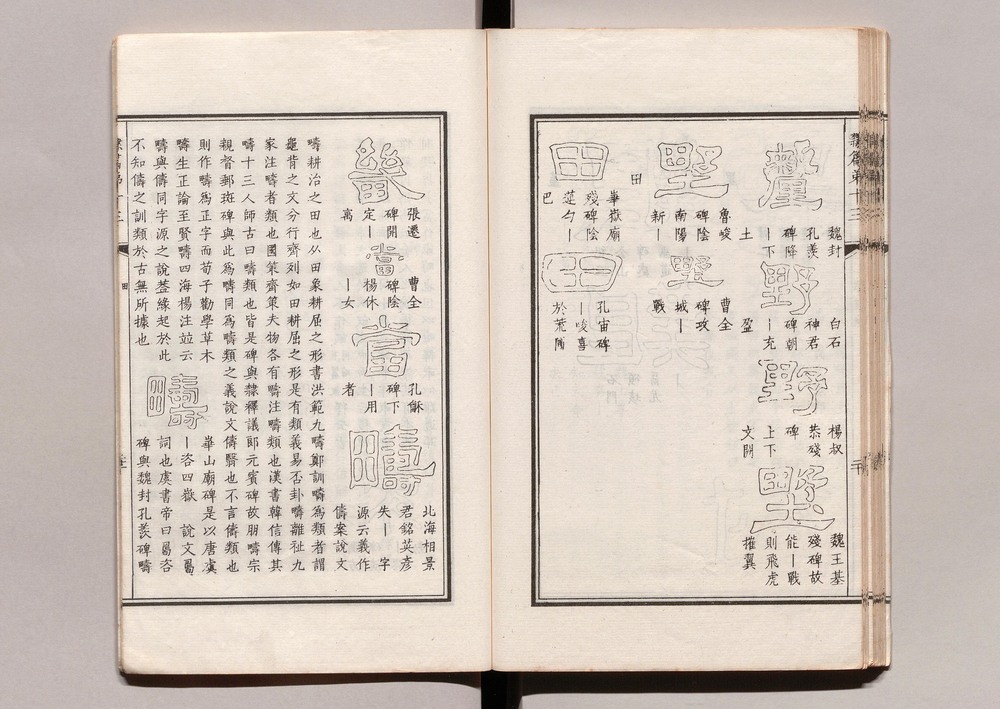 隸篇第十三
釐
魏封
孔羨
碑降
丨下
土
野
白石
神君
碑朝
丨充
盈
野
楊叔
恭殘
碑
上下
文闕
野
魏王基
殘碑故
能丨戰
則飛虎
摧翼
野
魯峻
碑陰
南陽
新丨
野
曹全
碑攻
城丨
戰
田
田
華嶽廟
殘碑陰
蓮勺丨
巴
田
孔宙碑
丨畯喜
於荒圃
張遷
碑開
定丨
寓
當
曹全
碑陰
楊休
丨女
當
孔龢
碑下
丨用
者
疇
北海相景
君銘英彥
失丨 字
源云義作
儔案說文
疇耕治之田也从田象耕屈之形書洪範九疇鄭訓疇爲類者謂
龜背之文分行齊列如田耕屈之形是有類義易否卦疇離祉九
家注疇者類也國策齊策夫物各有疇注疇類也漢書韓信傳其
疇十三人師古曰疇類也皆是碑與隸釋議郎元賓碑故朋疇宗
親督郵斑碑與此爲疇同爲疇類之義說文儔翳也不言儔類也
則作疇爲正字而荀子勸學草木
疇生正論至賢疇四海楊注竝云
疇與儔同字源之說葢緣起於此
不知儔之訓類於古無所據也
疇
華山廟碑是以唐虞
丨咨四嶽 說文
詞也虞書帝曰 咨
碑與魏封孔羨碑疇
田